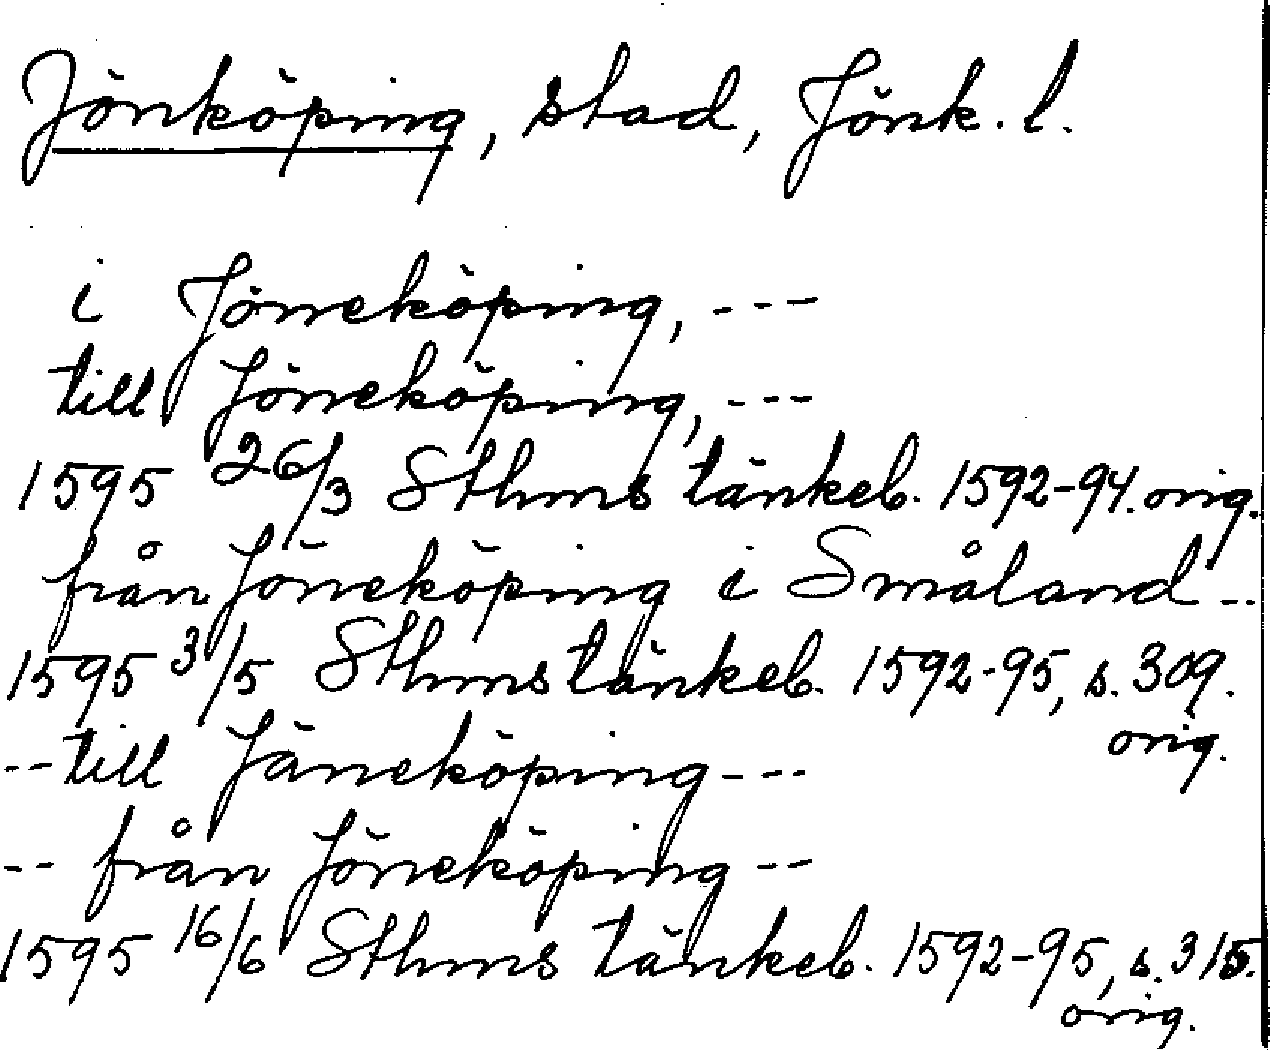 Jönköping, stad, Jönk. l.
i Jöneköping, ---
till Jöneköping, ---
1595 26/3 Sthms tänkeb. 1592-94. orig.
från Jöneköping i Småland --
1595 3/5 Sthms tänkeb. 1592-95, s. 309.
orig.
-- till Jäneköping ---
-- från Jöneköping --
1595 16/6 Sthms tänkeb. 1592-95, s. 315.
orig.